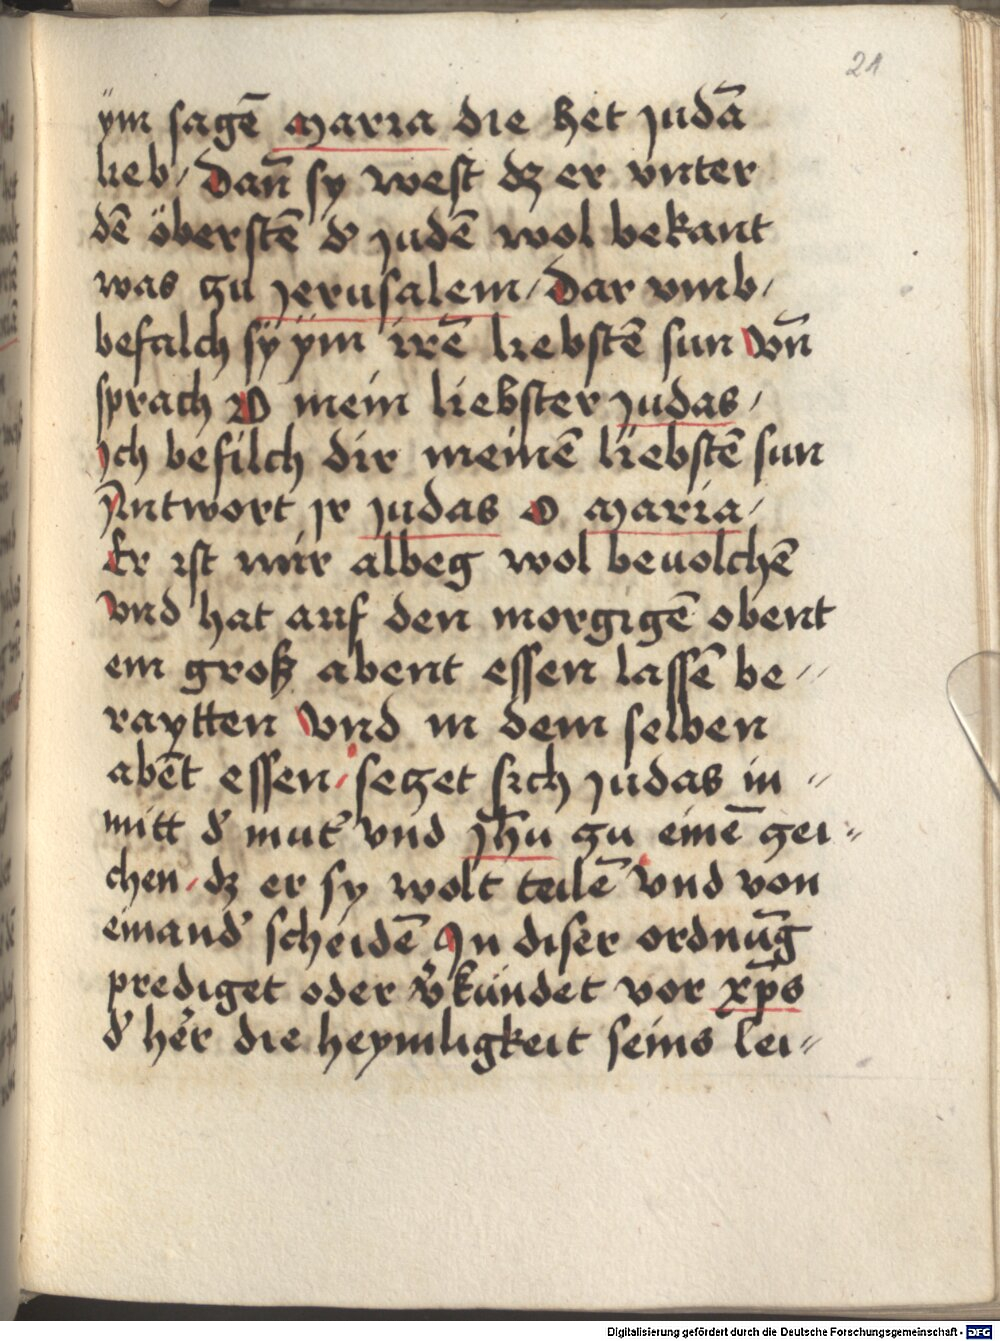 21
ÿm sagē Maria die het Judā
lieb / Dan̄ sy west dz er vnter
dē öberstē d' Judē wol bekant
was zu Jerusalem / Dar vmb /
befalch sÿ ÿm irē liebstē sun Vn̄
sprach O mein liebster Judas /
Ich befilch dir meinē liebstē sun
Antwort jr Judas O Maria /
Er ist mir albeg wol beuolchē
Vnd hat auf den morgigē obent
ein groß abent essen lassē be//
raytten Vnd in dem selben
abēt essen / seczet sich Judas in //
mitt d' mut' vnd Jh̄u zu einē zei//
chen / dz er sy wolt teilē vnd von
einand' scheidē In diser ordnūg
prediget oder v'kündet vor xp̄s
d' her' die heymligkeit seins lei//
Digitalisierung gefördert durch die Deutsche Forschungsgemeinschaft - DFG